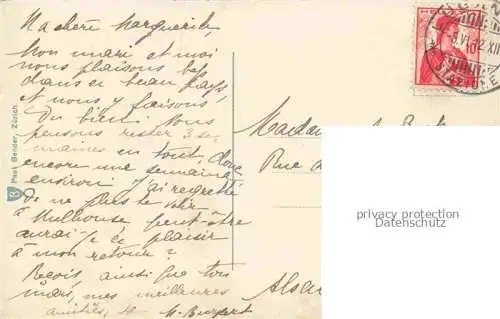 Ma chère Marguerite,
Mon mari et moi
nous plaisons bcp
dans ce beau pays,
et nous y faisons
Du bien. Nous
pensons rester 3 se-
maines en tout, donc
encore une semaine
environ. J'ai regretté
de ne plus te voir
à Mulhouse peut-être
aurai-je ce plaisir
à mon retour?
Reçois ainsi que ton
mari, mes meilleures
amitiés,
Paul Bender, Zürich
Madame
Rue
Alsace
STAZIONE
privacy protection
Datenschutz